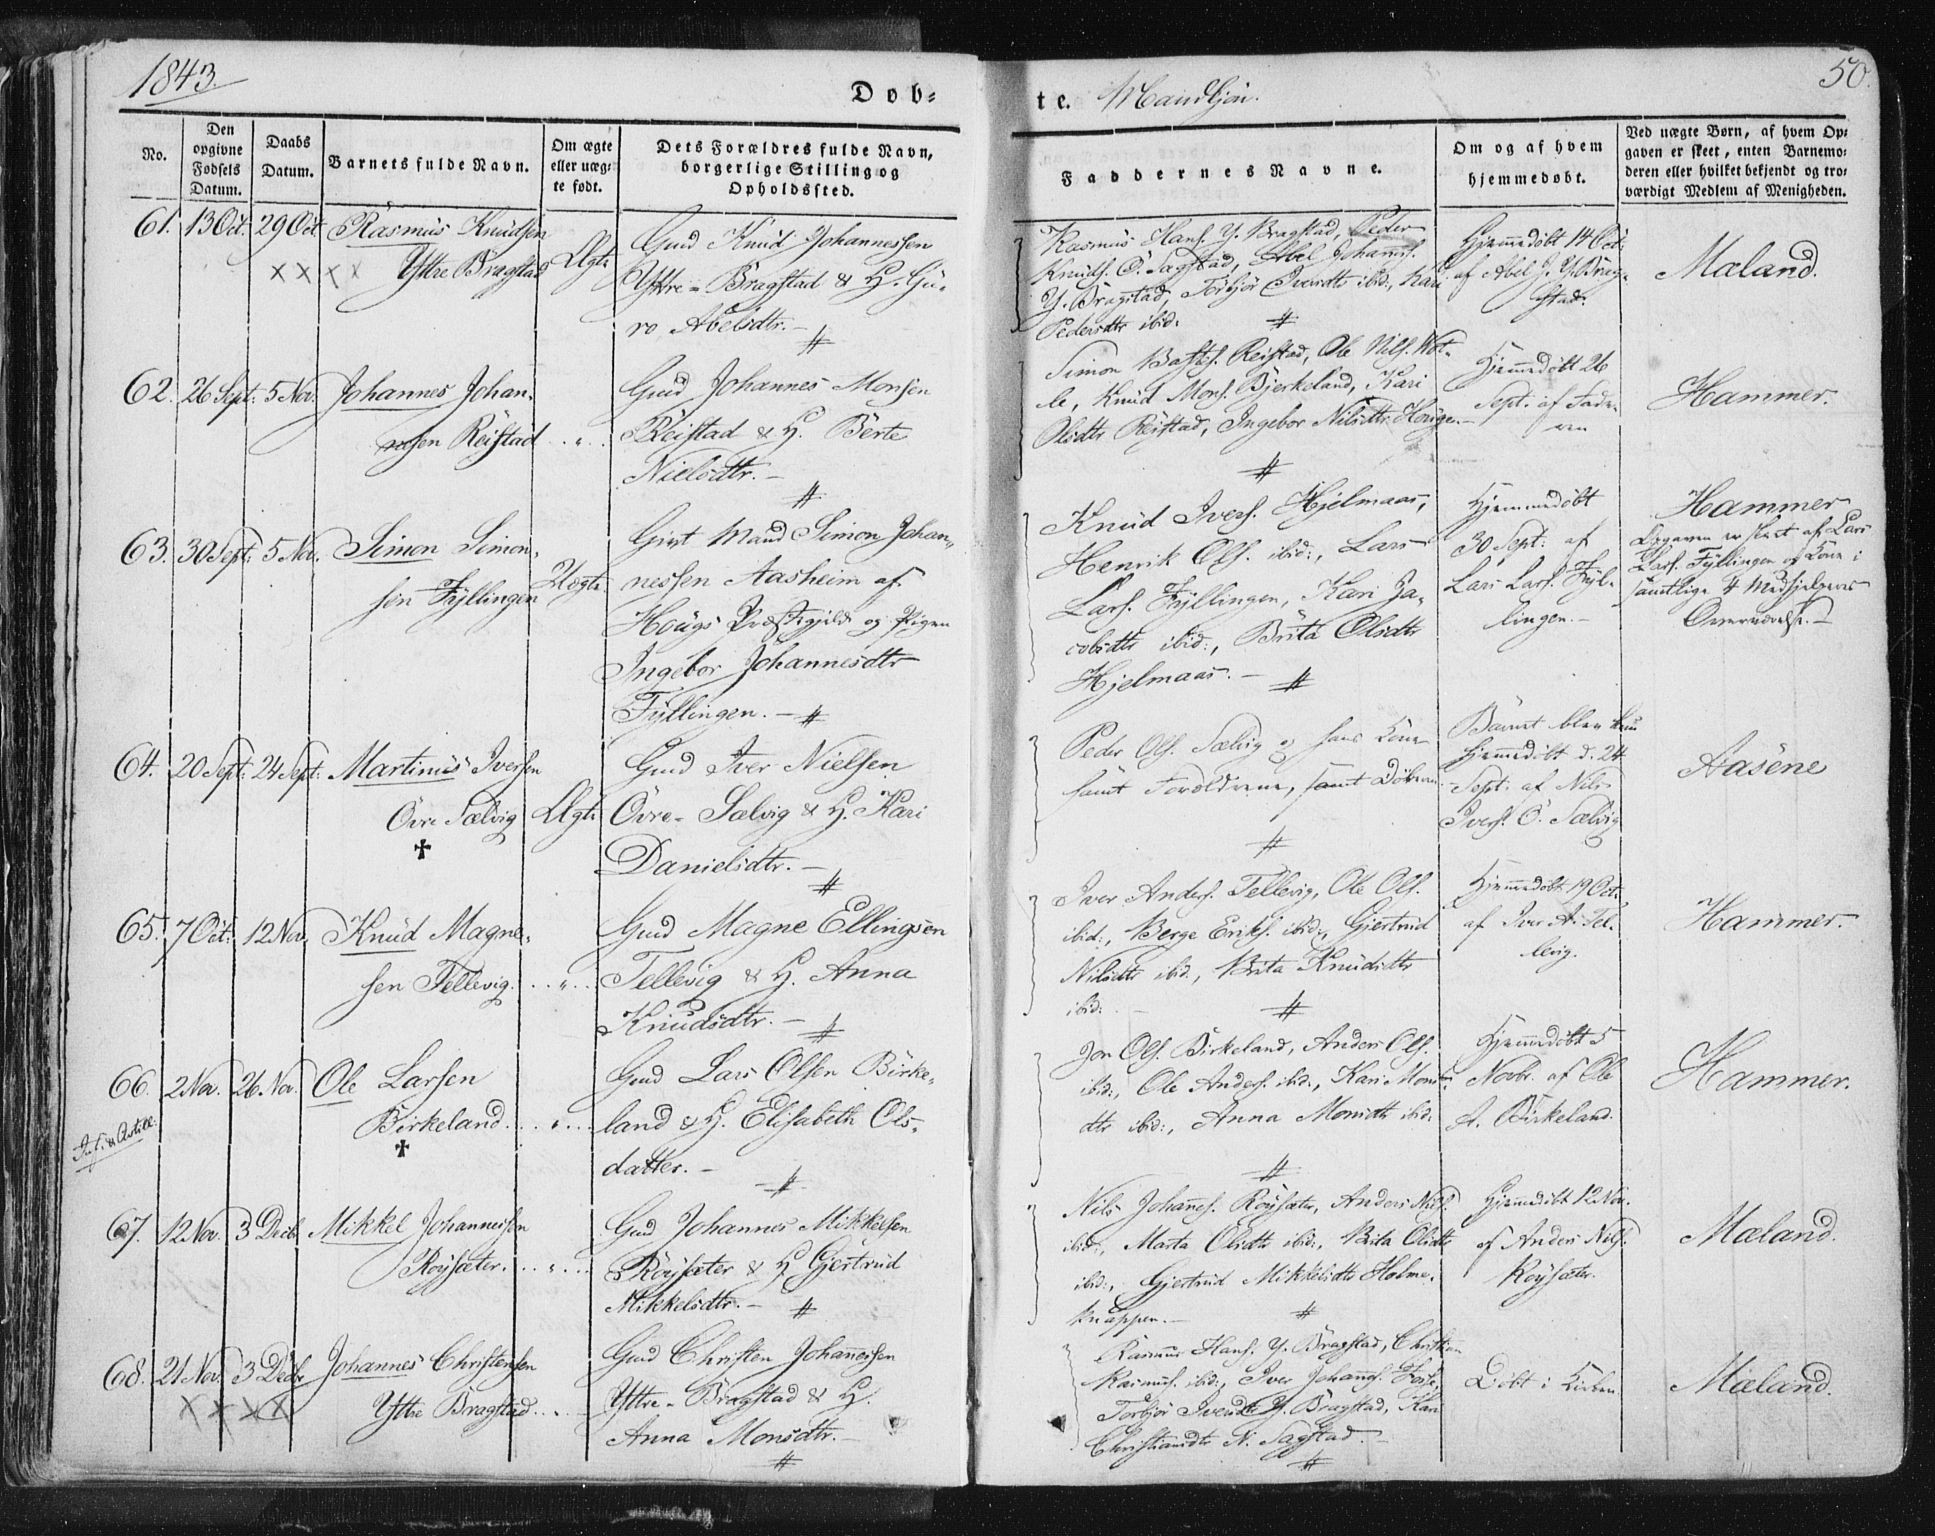 1843.
Dob=
te. Mandkjøn.
50.
No.
Den opgivne Fødsels Datum.
Daabs Datum.
Barnets fulde Navn.
Om ægte eller uæg= te født.
Dets Forældres fulde Navn, borgerlige Stilling og Opholdssted.
Faddernes Navne.
Om og af hvem hjemmedøbt.
Ved uægte Børn, af hvem Op= gaven er skeet, enten Barnemo= deren eller hvilket bekjendt og tro= værdigt Medlem af Menigheden.
61. 13 Oct. 29 Oct. Rasmus Knudsen
Yttre Bragstad Ægte
Gmd Knud Johannessen
Yttre-Bragstad & H. Gju-
ro Abelsdtr.-
Rasmus Hans. Y. Bragstad, Peder
Knuds. Ö. Sagstad, Abel Johanns.
Y. Bragstad, Torbjør Iversdtr ibid:, Kari
Pedersdtr ibid:
Hjemmedøbt 14 Oct:
af Abel J. Y. Brag-
stad.
Mæland.
62. 26 Sept: 5 Nov. Johannes Johan-
nesen Reistad . . „ . .
Gmd Johannes Monsen
Reistad & H. Berte
Nielsdtr.-
Simon Reistad, Ole Nils.
le, Knud Mons. Bjerkeland, Kari
Olsdtr Reistad, Ingebor Nilsdtr Hougen.-
Hjemmedøbt 26
Sept: af Fade-
ren
Hammer.
63. 30 Sept: 5 Nov. Simon Simon-
sen Fyllingen Uægte.
Gift Mand Simon Johan-
nessen Aasheim af
Hougs Præstegjeld og Pigen
Ingebor Johannesdtr
Fyllingen.-
Knud Ivers. Hjelmaas,
Henrik Ols. ibid:, Lars
Lars. Fyllingen, Kari Ja-
cobsdtr ibid:, Brita Olsdtr
Hjelmaas.-
Hjemmedøbt
30 Sept: af
Lars Lars. Fyl-
lingen.-
Hammer
Opgaven er skeet af Lars
Lars. Fyllingen og Kone i
samtlige 4 Medhjelperes
Overværelse.-
64. 20 Sept: 24 Sept: Martinus Iversen
Övre Sælvig Ægte
✝
Gmd Iver Nielsen
Övre-Sælvig & H. Kari
Danielsdtr.-
Peder Ols. Sælvig og hans Kone
samt Forældrene, samt Döberen
Barnet blev kun
hjemmedøbt d. 24
Sept: af Nils
Ivers. Ö. Sælvig
Aasene
65. 7 Oct: 12 Nov. Knud Magne-
sen Tellevig. . . „ . .
Gmd Magne Ellingsen
Tellevig & H. Anna
Knudsdtr.-
Iver Anders. Tellevig, Ole Ols.
ibid:, Berge Eriks. ibid:, Gjertrud
Nilsdtr ibid., Brita Knudsdtr
ibid:
Hjemmedøbt 19 Oct.
af Iver A. Tel-
levig.
Hammer.
66. 2 Nov. 26 Nov. Ole Larsen
Birkeland. . . „ . . .
✝
Gmd Lars Olsen Birke-
land & H. Elisabeth Ols-
datter.-
Jon Ols. Birkeland, Anders Ols.
ibid:, Ole Anders. ibid:, Kari Mons-
dtr ibid:, Anna Monsdtr ibid:
Hjemmedøbt 5
Novbr. af Ole
A. Birkeland.
Hammer.
67. 12 Nov. 3 Decb. Mikkel Johannessen
Röysæter. . . „ . . .
Gmd Johannes Mikkelsen
Röysæter & H Gjertrud
Mikkelsdtr.-
Nils Johanes. Röysæter, Anders Nils.
ibid:, Marta Olsdtr ibid:, Brita Olsdtr
ibid:, Gjertrud Mikkelsdtr Holme-
knappen.-
Hjemmedøbt 12 Nov.
af Anders Nils.
Röysæter.
Mæland.
68. 21 Nov. 3 Decbr Johannes Christensen
Yttre Bragstad. . . „
Gmd Christen Johanessen
Yttre-Bragstad & H.
Anna Monsdtr.-
Rasmus Hans. Y. Bragstad, Christen
Rasmus. ibid:, Iver Johanns. Foste,
Torbjør Iversdtr Y. Bragstad, Kari
Christiansdtr N. Sagstad.-
Döbt i Kirken
Mæland.